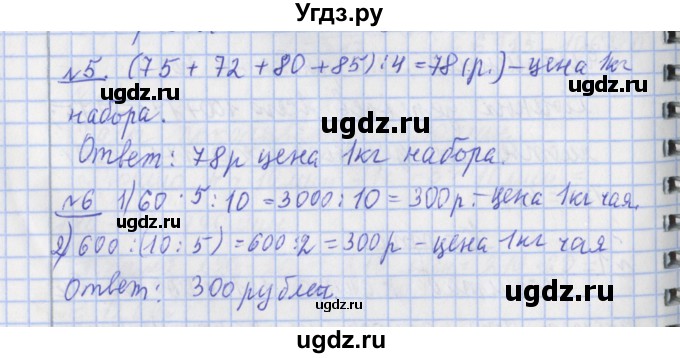 Угдз.ру
№5. (75 + 72 + 80 + 85) : 4 = 78 (р.) – цена 1кг
набора.
ugdz.ru ugdz.ru
Ответ: 78р цена 1кг набора.
ugdz.ru
№6 1) 60 · 5 : 10 = 3000 : 10 = 300р. – цена 1кг чая.
ugdz.ru
2) 600 : (10 : 5) = 600 : 2 = 300р – цена 1кг чая
Ответ: 300 рублей.
ugdz.ru ugdz.ru
Угдз.ру